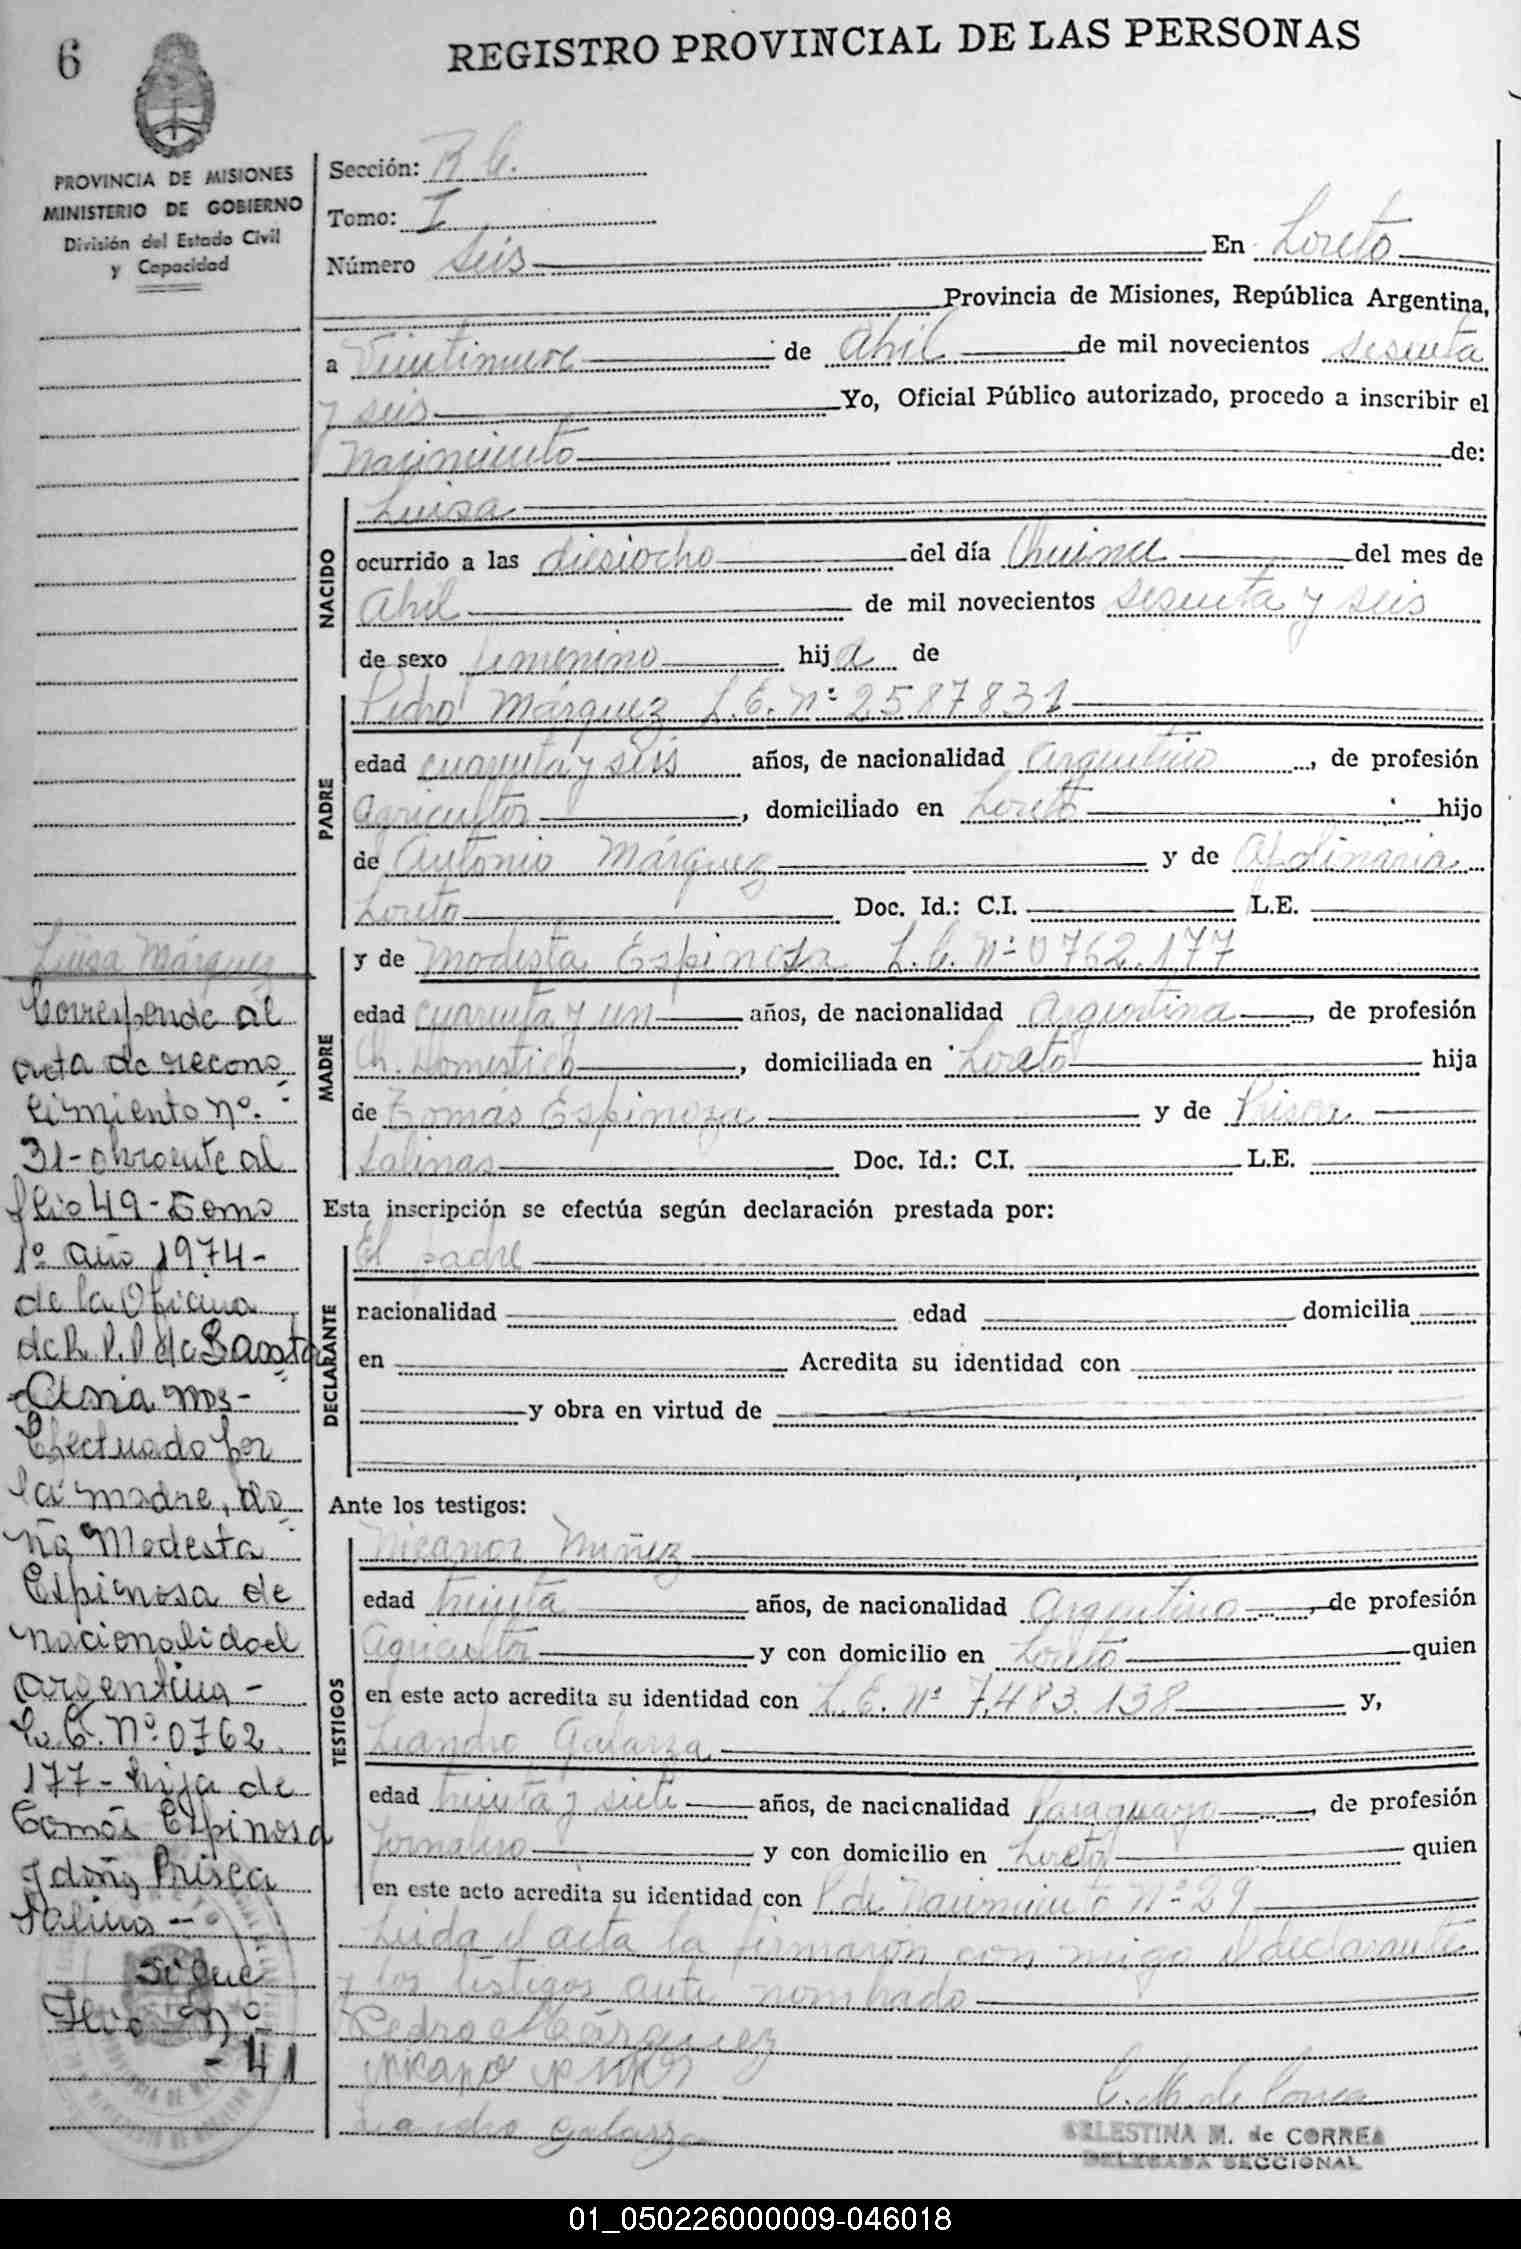 6
REGISTRO PROVINCIAL DE LAS PERSONAS
PROVINCIA DE MISIONES
MINISTERIO DE GOBIERNO
División del Estado Civil
y Capacidad
Sección: R C.
Tomo: I
Número Seis En Loreto
Provincia de Misiones, República Argentina,
a Veintinueve de Abril de mil novecientos sesenta
y seis Yo, Oficial Público autorizado, procedo a inscribir el
Nacimiento de:
NACIDO
Luisa
ocurrido a las diesiocho del día del mes de
Abril de mil novecientos sesenta y seis
de sexo femenino hija de
PADRE
Pedro Márquez L.E. Nº 2587831
edad cuarenta y seis años, de nacionalidad Argentino, de profesión
Agricultor, domiciliado en Loreto hijo
de Antonio Márquez y de Apolinaria
Loreto Doc. Id.: C.I. L.E.
MADRE
y de Modesta Espinosa L.C. Nº 0762.177
edad cuarenta y un años, de nacionalidad Argentina, de profesión
Q. Domestico, domiciliada en Loreto hija
de Tomás Espinoza y de Prisca
Salinas Doc. Id.: C.I. L.E.
Esta inscripción se efectúa según declaración prestada por:
DECLARANTE
El padre
nacionalidad edad domicilia
en Acredita su identidad con
y obra en virtud de
Ante los testigos:
TESTIGOS
Nicanor Nuñez
edad treinta años, de nacionalidad Argentino, de profesión
Agricultor y con domicilio en Loreto quien
en este acto acredita su identidad con L.E. Nº 7.483.138 y,
Leandro Galarza
edad treinta y siete años, de nacionalidad Paraguayo, de profesión
Jornalero y con domicilio en Loreto quien
en este acto acredita su identidad con P. de Nacimiento Nº 29
Leida el acta la firmaron con migo el declarante
y los testigos ante nombrado
Pedro Márquez
Leandro Galarza
C. M. de Correa
CELESTINA M. de CORREA
DELEGADA SECCIONAL
Luisa Márquez
Corresponde al
acta de recono
cimiento nº.
31- obrante al
flio 49 - Tomo
1º año 1974-
de la Oficina
de R. P. P de Santa
Ana Mns-
Efectuado por
la madre, do
ña Modesta
Espinosa de
nacionalidad
argentina-
L. C. Nº 0762.
177- hija de
Tomás Espinosa
y doña Prisca
Salinas -
Sigue
Flio nº
- 41
01_050226000009-046018